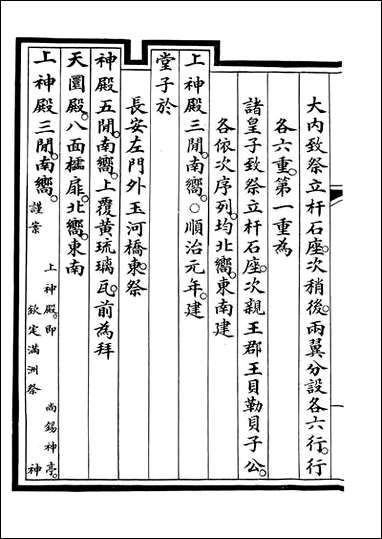 大内致祭立杆石座次稍後兩翼分設各六行行
各六重第一重為
諸皇子致祭立杆石座次親王郡王貝勒貝子公
各依次序列均北嚮東南建
上神殿三間南嚮○順治元年建
堂子於
長安左門外玉河橋東祭
神殿五間南嚮上覆黄琉璃瓦前為拜
天圜殿八面櫺扉北嚮東南
上神殿三間南嚮謹案 上神殿即 尚錫神亭
欽定滿洲祭 神